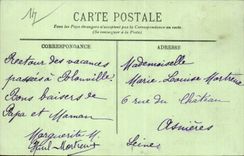 CARTE POSTALE
Tous les Pays étrangers n'acceptent pas la Correspondance au recto.
(Se renseigner à la Poste)
CORRESPONDANCE
ADRESSE
Rectour des vacances
passées à Blonville
Bons baisers de
Papa et Maman
Marguerite M.
Mademoiselle
Marie Louise Mortreux
6 rue du Château
Asnières
Seine